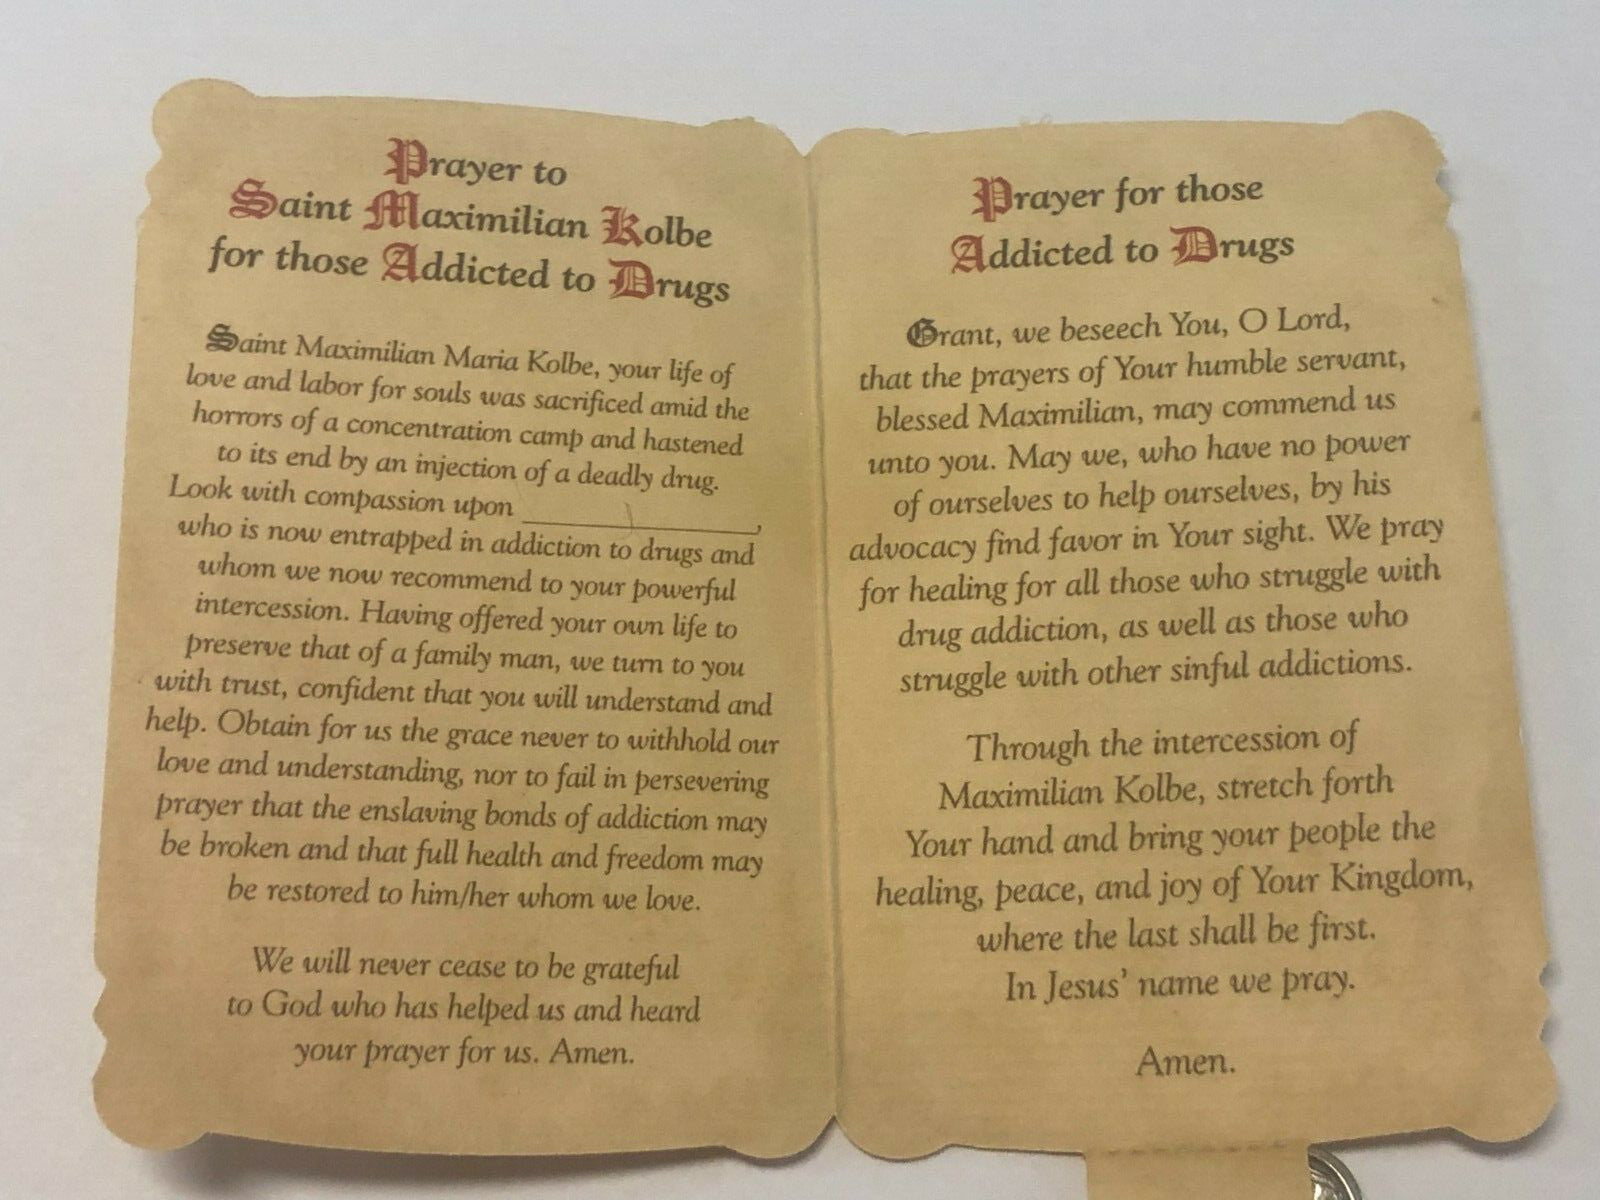 Prayer to
Saint Maximilian Kolbe
for those Addicted to Drugs
Saint Maximilian Maria Kolbe, your life of
love and labor for souls was sacrificed amid the
horrors of a concentration camp and hastened
to its end by an injection of a deadly drug.
Look with compassion upon ____________,
who is now entrapped in addiction to drugs and
whom we now recommend to your powerful
intercession. Having offered your own life to
preserve that of a family man, we turn to you
with trust, confident that you will understand and
help. Obtain for us the grace never to withhold our
love and understanding, nor to fail in persevering
prayer that the enslaving bonds of addiction may
be broken and that full health and freedom may
be restored to him/her whom we love.
We will never cease to be grateful
to God who has helped us and heard
your prayer for us. Amen.
Prayer for those
Addicted to Drugs
Grant, we beseech You, O Lord,
that the prayers of Your humble servant,
blessed Maximilian, may commend us
unto you. May we, who have no power
of ourselves to help ourselves, by his
advocacy find favor in Your sight. We pray
for healing for all those who struggle with
drug addiction, as well as those who
struggle with other sinful addictions.
Through the intercession of
Maximilian Kolbe, stretch forth
Your hand and bring your people the
healing, peace, and joy of Your Kingdom,
where the last shall be first.
In Jesus' name we pray.
Amen.